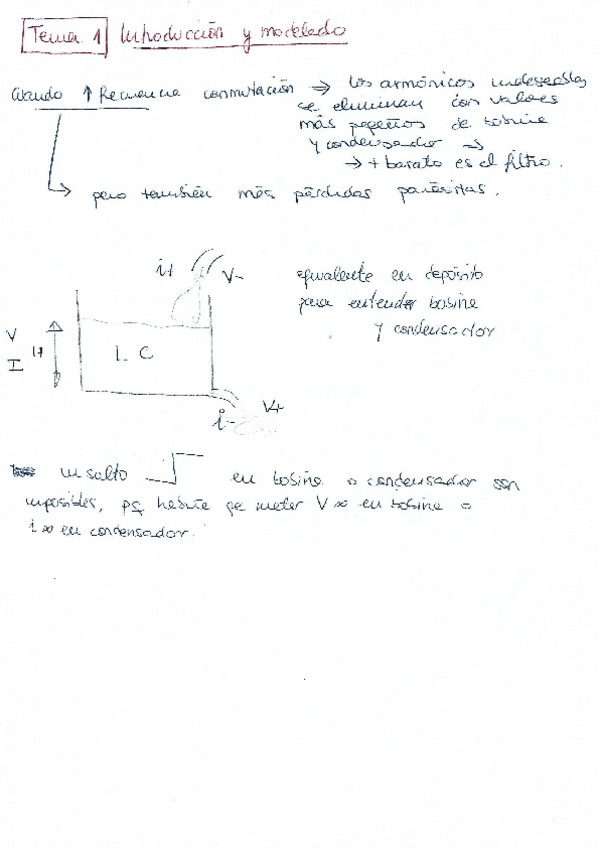 Tema 1 Introducción y modelado
Cuando ↑ Frecuencia conmutación ⇒ los armónicos indeseables
se eliminan con valores
más pequeños de bobina
y condensador ⇒
→ + barato es el filtro.
pero también más pérdidas parásitas.
i+ V-
equivalente en depósito
para entender bobina
y condensador
V
I
H
L C
i- V+
un salto en bobina o condensador son
imposibles, pq habría qe meter V ∞ en bobina o
i ∞ en condensador.